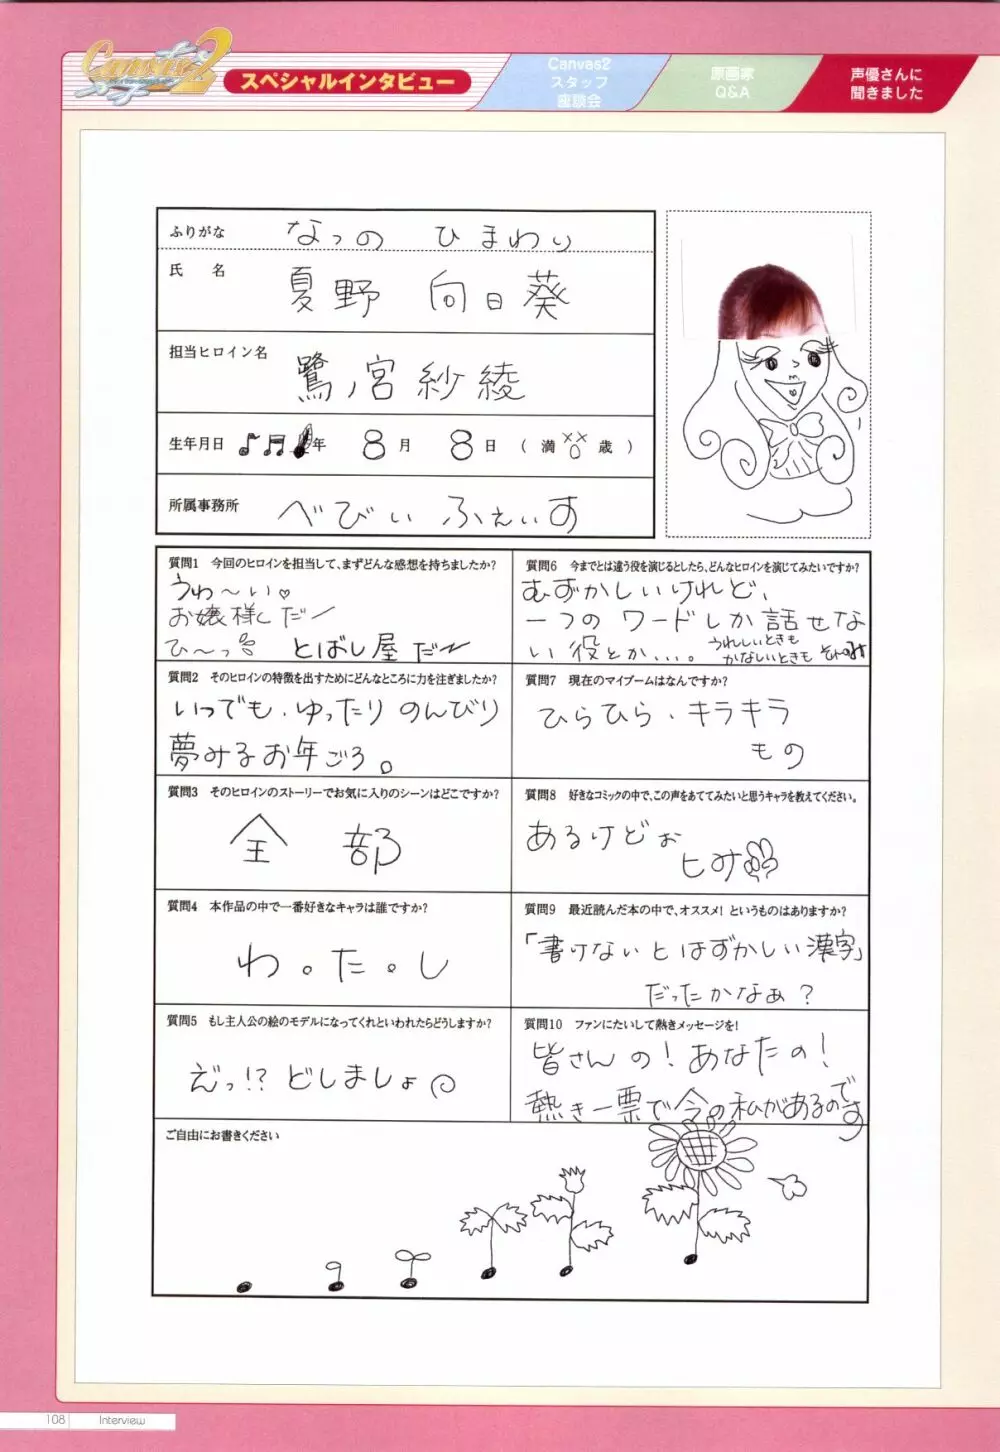 Canvas2
スペシャルインタビュー
Canvas2
スタッフ
座談会
原画家
Q&A
声優さんに
聞きました
ふりがな なつの ひまわり
氏 名 夏野 向日葵
担当ヒロイン名 鷺ノ宮紗綾
生年月日 ♪♫年 8月 8日 ( 満 歳 )
所属事務所 べびぃ ふぇいす
質問1 今回のヒロインを担当して、まずどんな感想を持ちましたか?
うわ〜い♡
お嬢様だー
ひ〜っ とばし屋だー
質問2 そのヒロインの特徴を出すためにどんなところに力を注ぎましたか?
いつでも、ゆったり のんびり
夢みるお年ごろ。
質問3 そのヒロインのストーリーでお気に入りのシーンはどこですか?
全 部
質問4 本作品の中で一番好きなキャラは誰ですか?
わ。た。し
質問5 もし主人公の絵のモデルになってくれといわれたらどうしますか?
えっ!? どしましょ
質問6 今までとは違う役を演じるとしたら、どんなヒロインを演じてみたいですか?
むずかしいけれど、
一つの ワードしか 話せな
い 役とか...。 うれしいときも
かなしいときも
質問7 現在のマイブームはなんですか?
ひらひら、キラキラ
もの
質問8 好きなコミックの中で、この声をあててみたいと思うキャラを教えてください。
あるけどぉ
ヒみ
質問9 最近読んだ本の中で、オススメ! というものはありますか?
「書けないとはずかしい漢字」
だったかなぁ?
質問10 ファンにたいして熱きメッセージを!
皆さんの! あなたの!
熱き一票で今の私があるのです
ご自由にお書きください
108 Interview